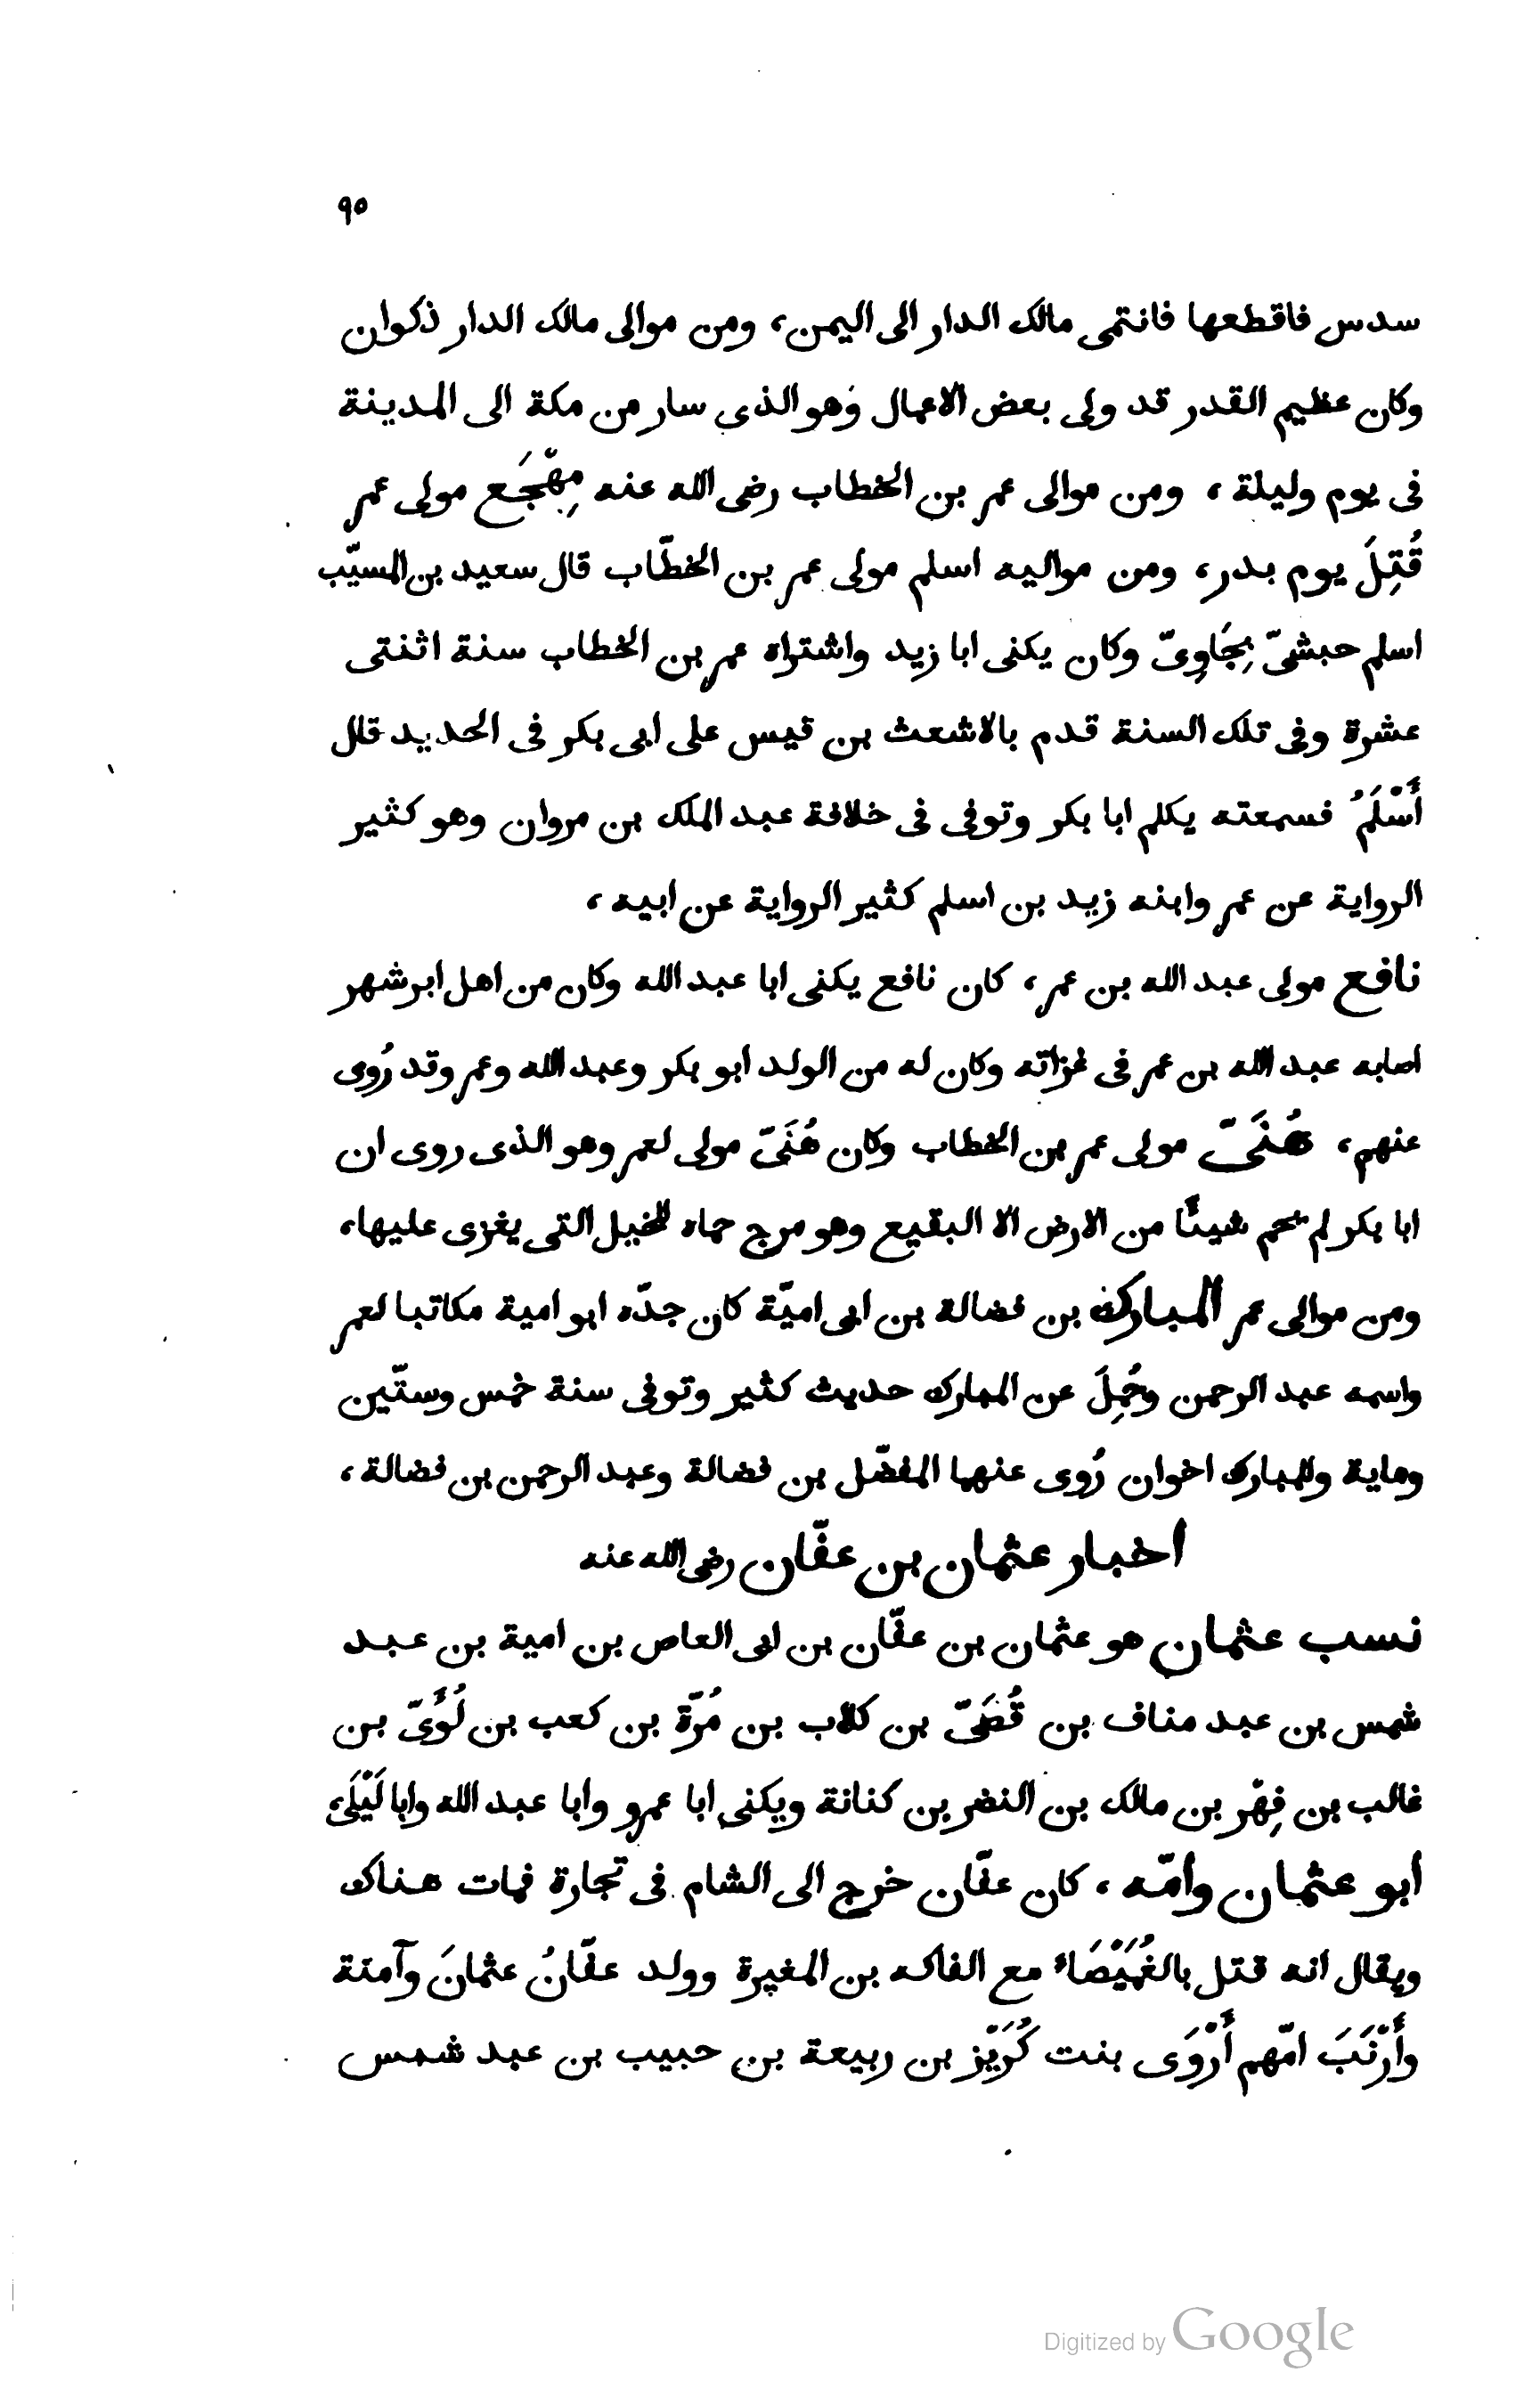 ٩٥
سدس فاقطعها فانتمى مالك الدار الى اليمن، ومن موالى مالك الدار ذكوان
وكان عظيم القدر قد ولى بعض الاعمال وهو الذى سار من مكة الى المدينة
فى يوم وليلة، ومن موالى عمر بن الخطاب رضى الله عنه مِهْجَع مولى عمر
قُتِلَ يوم بدر، ومن مواليه اسلم مولى عمر بن الخطّاب قال سعيد بن المسيّب
اسلم حبشىّ بِجَاوِىّ وكان يكنى ابا زيد واشتراه عمر بن الخطاب سنة اثنتى
عشرة وفى تلك السنة قدم بالاشعث بن قيس على ابى بكر فى الحديد قال
أَسْلَمُ فسمعته يكلم ابا بكر وتوفى فى خلافة عبد الملك بن مروان وهو كثير
الرواية عن عمر وابنه زيد بن اسلم كثير الرواية عن ابيه،
نافع مولى عبد الله بن عمر، كان نافع يكنى ابا عبد الله وكان من اهل ابرشهر
اصابه عبد الله بن عمر فى غزاته وكان له من الولد ابو بكر وعبد الله وعمر وقد رُوى
عنهم، هُنَىّ مولى عمر بن الخطاب وكان هُنَىّ مولى لعمر وهو الذى روى ان
ابا بكر لم يحم شيئًا من الارض الا البقيع وهو مرج حماه للخيل التى يغزى عليها،
ومن موالى عمر المبارك بن فضالة بن ابى اميّة كان جدّه ابو امية مكاتبا لعمر
واسمه عبد الرحمن وحُمِلَ عن المبارك حديث كثير وتوفى سنة خمس وستّين
وماية وللمبارك اخوان رُوى عنهما المفضّل بن فضالة وعبد الرحمن بن فضالة،
اخبار عثمان بن عفّان رضى الله عنه
نسب عثمان هو عثمان بن عفّان بن ابى العاص بن امية بن عبد
شمس بن عبد مناف بن قُصَىّ بن كلاب بن مُرّة بن كعب بن لُؤَىّ بن
غالب بن فِهْر بن مالك بن النضر بن كنانة ويكنى ابا عمرو وابا عبد الله وابا لَيْلَى
أبو عثمان وامّه، كان عفّان خرج الى الشام فى تجارة فمات هناك
ويقال انه قتل بالغُمَيْصَاء مع الفاكه بن المغيرة وولد عفّانُ عثمانَ وآمنة
وأَرْنَبَ امّهم أَرْوَى بنت كُرَيْز بن ربيعة بن حبيب بن عبد شمس
Digitized by Google